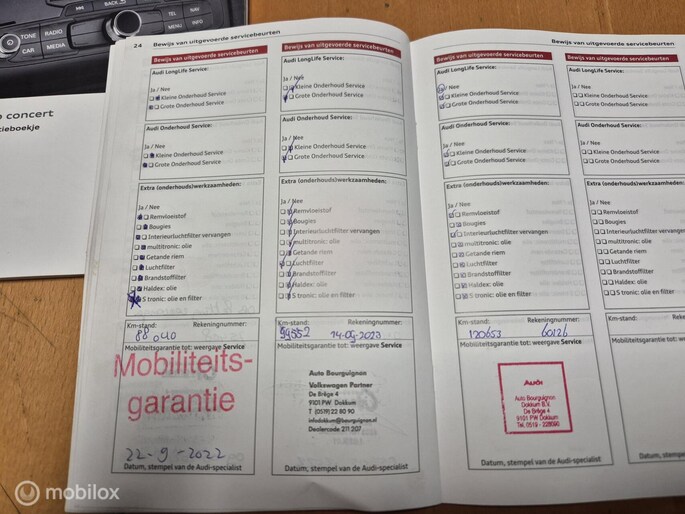 TONE
RADIO
CAR
MEDIA
TEL
NAV
MENU
INFO
BACK
concert
tieboekje
24
Bewijs van uitgevoerde servicebeurten
Bewijs van uitgevoerde servicebeurten
Audi LongLife Service:
Ja / Nee
Kleine Onderhoud Service
Grote Onderhoud Service
Audi Onderhoud Service:
Ja / Nee
Kleine Onderhoud Service
Grote Onderhoud Service
Extra (onderhouds)werkzaamheden:
Ja / Nee
Remvloeistof
Bougies
Interieurluchtfilter vervangen
multitronic: olie
Getande riem
Luchtfilter
Brandstoffilter
Haldex: olie
S tronic: olie en filter
Km-stand: Rekeningnummer:
88040
Mobiliteitsgarantie tot: weergave Service
Mobiliteits-
garantie
22-9-2022
Datum, stempel van de Audi-specialist
Bewijs van uitgevoerde servicebeurten
Audi LongLife Service:
Ja / Nee
Kleine Onderhoud Service
Grote Onderhoud Service
Audi Onderhoud Service:
Ja / Nee
Kleine Onderhoud Service
Grote Onderhoud Service
Extra (onderhouds)werkzaamheden:
Ja / Nee
Remvloeistof
Bougies
Interieurluchtfilter vervangen
multitronic: olie
Getande riem
Luchtfilter
Brandstoffilter
Haldex: olie
S tronic: olie en filter
Km-stand: Rekeningnummer:
99552 14-09-2023
Mobiliteitsgarantie tot: weergave Service
Auto Bourguignon
Volkswagen Partner
De Brêge 4
9101 PW Dokkum
T (0519) 22 80 90
infodokkum@bourguignon.nl
Dealercode 211 207
Datum, stempel van de Audi-specialist
Bewijs van uitgevoerde servicebeurten
Bewijs van uitgevoerde servicebeurten
Audi LongLife Service:
Ja / Nee
Kleine Onderhoud Service
Grote Onderhoud Service
Audi Onderhoud Service:
Ja / Nee
Kleine Onderhoud Service
Grote Onderhoud Service
Extra (onderhouds)werkzaamheden:
Ja / Nee
Remvloeistof
Bougies
Interieurluchtfilter vervangen
multitronic: olie
Getande riem
Luchtfilter
Brandstoffilter
Haldex: olie
S tronic: olie en filter
Km-stand: Rekeningnummer:
120653 60126
Mobiliteitsgarantie tot: weergave Service
Audi
Auto Bourguignon
Dokkum B.V.
De Brêge 4
9101 PW Dokkum
Tel. 0519 - 228090
Datum, stempel van de Audi-specialist
Bewijs van uitgevoerde
Audi LongLife Service:
Ja / Nee
Kleine Onderhoud Service
Grote Onderhoud Service
Audi Onderhoud Service:
Ja / Nee
Kleine Onderhoud Service
Grote Onderhoud Service
Extra (onderhouds)werkzaam
Ja / Nee
Remvloeistof
Bougies
Interieurluchtfilter
multitronic: olie
Getande riem
Luchtfilter
Brandstoffilter
Haldex: olie
S tronic: olie en
Km-stand:
Mobiliteitsgarantie tot:
Datum, stempel van
mobilox